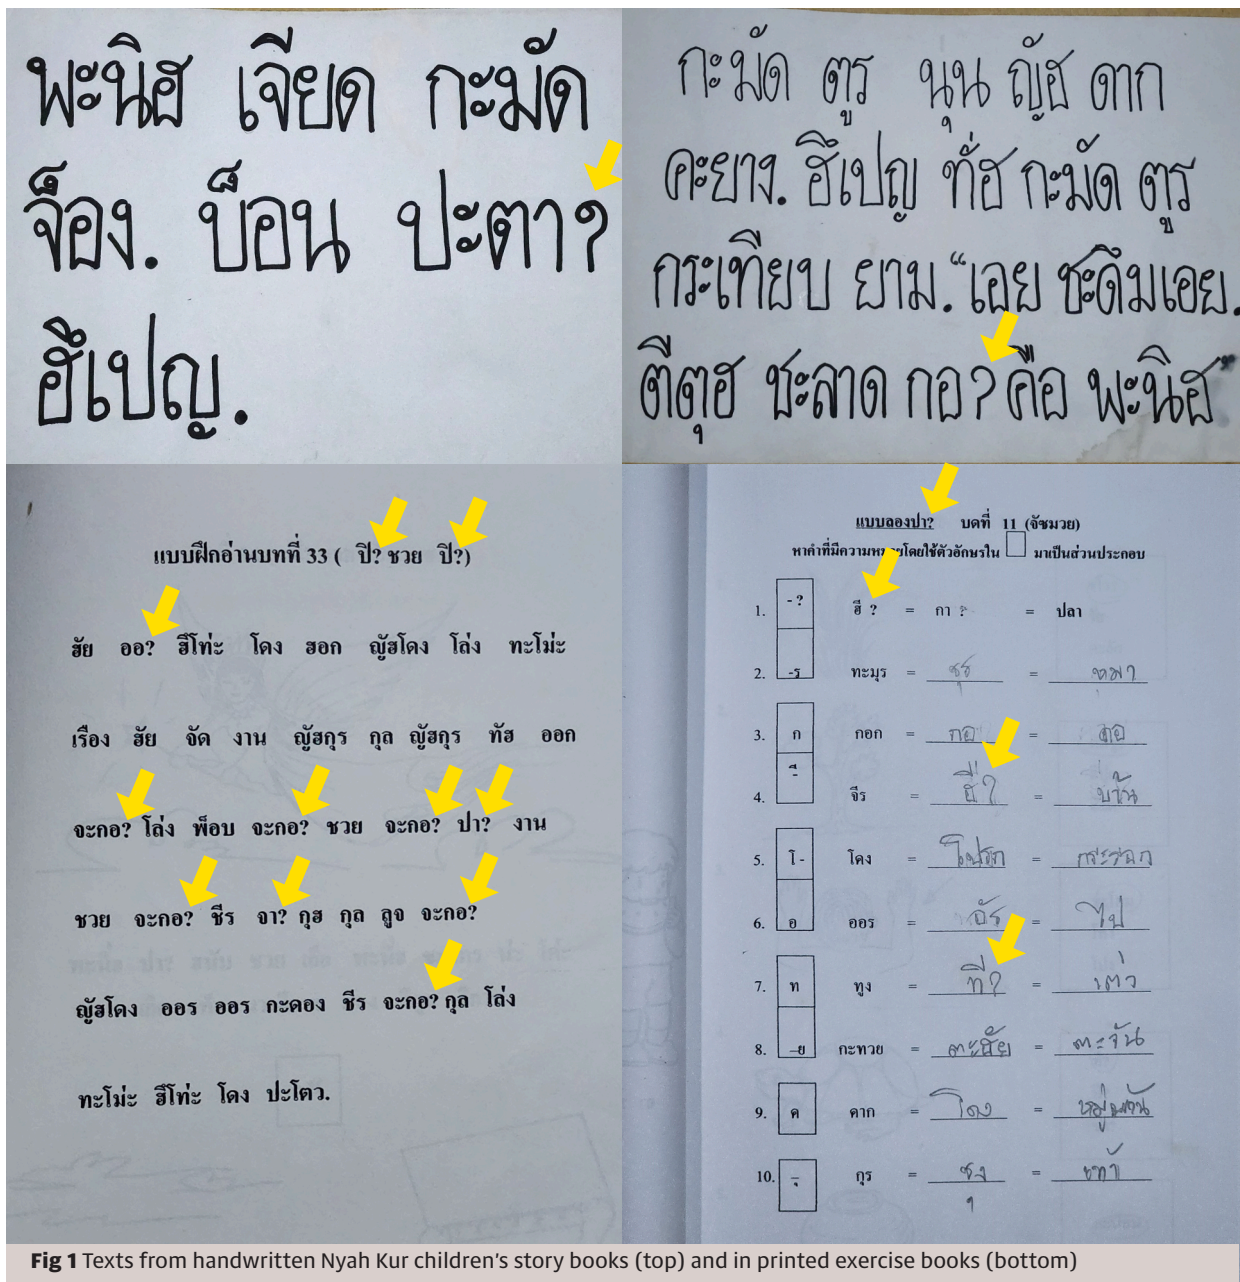 พะนิฮ เจียด กะมัด
จ็อง. บ็อน ปะตา?
ฮึเปญ.
กะมัด ตูร นุน ญัฮ ดาก
คะยาง. ฮึเปญ ทั่ฮ กะมัด ตูร
กระเทียบ ยาม. “เอย ชะดึมเอย.
ตีตุฮ ชะลาด กอ? คือ พะนิฮ”
แบบฝึกอ่านบทที่ 33 ( ปี? ชวย ปี?)
ฮัย ออ? ฮึโท่ะ โดง ฮอก ญัฮโดง โล่ง ทะโม่ะ
เรือง ฮัย จัด งาน ญัฮกุร กุล ญัฮกุร ทัฮ ออก
จะกอ? โล่ง พ็อบ จะกอ? ชวย จะกอ? ปา? งาน
ชวย จะกอ? ชีร จา? กุฮ กุล ลูจ จะกอ?
ญัฮโดง ออร ออร กะดอง ชีร จะกอ? กุล โล่ง
ทะโม่ะ ฮึโท่ะ โดง ปะโตว.
แบบลองปา? บดที่ 11 (จัชมวย)
หาคำที่มีความหมายโดยใช้ตัวอักษรใน มาเป็นส่วนประกอบ
1. -? ฮี ? = กา ? = ปลา
2. -ร ทะมุร = ชุร = หมา
3. ก กอก = กอ = คอ
4. -ี จีร = ฮี่? = บ้าน
5. โ- โดง = โปรก = กระรอก
6. อ ออร = อัร = ไป
7. ท ทูง = ที่? = เต่า
8. –ย กะทวย = ตะฮัย = ตะวัน
9. ค คาก = โดง = หมู่บ้าน
10. -ุ กุร = ชุง = เท้า
Fig 1 Texts from handwritten Nyah Kur children's story books (top) and in printed exercise books (bottom)